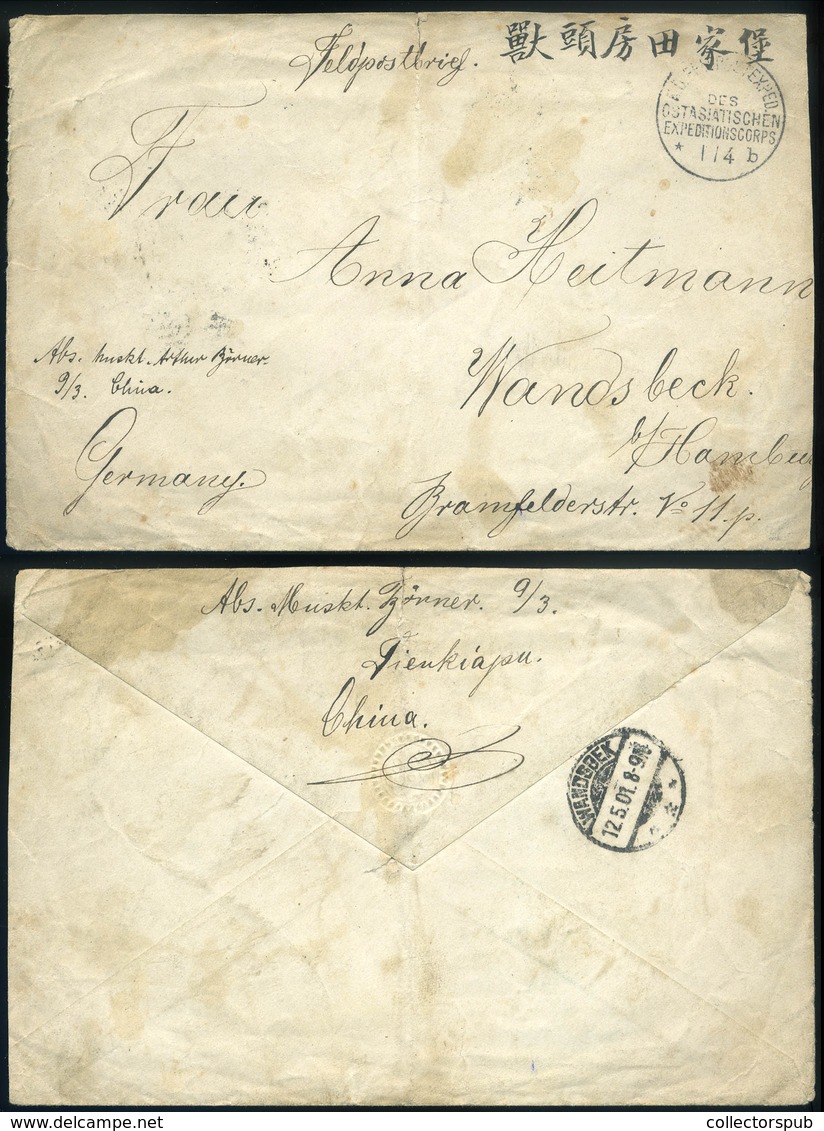 Feldpostbrief.
獸頭房田家堡
EXPED.
DES
OSTASIATISCHEN
EXPEDITIONSCORPS
* 1/4 b
Frau
Anna Heitmann
Wandsbeck.
b/Hamburg
Bramfelderstr. No 11. p.
Abs. Muskt. Arthur Börner.
9/3. China.
Germany.
Abs. Muskt. Börner. 9/3.
Tienkiapu.
China.
WANDSBEK
12.5.01. 8-9N
collectorspub